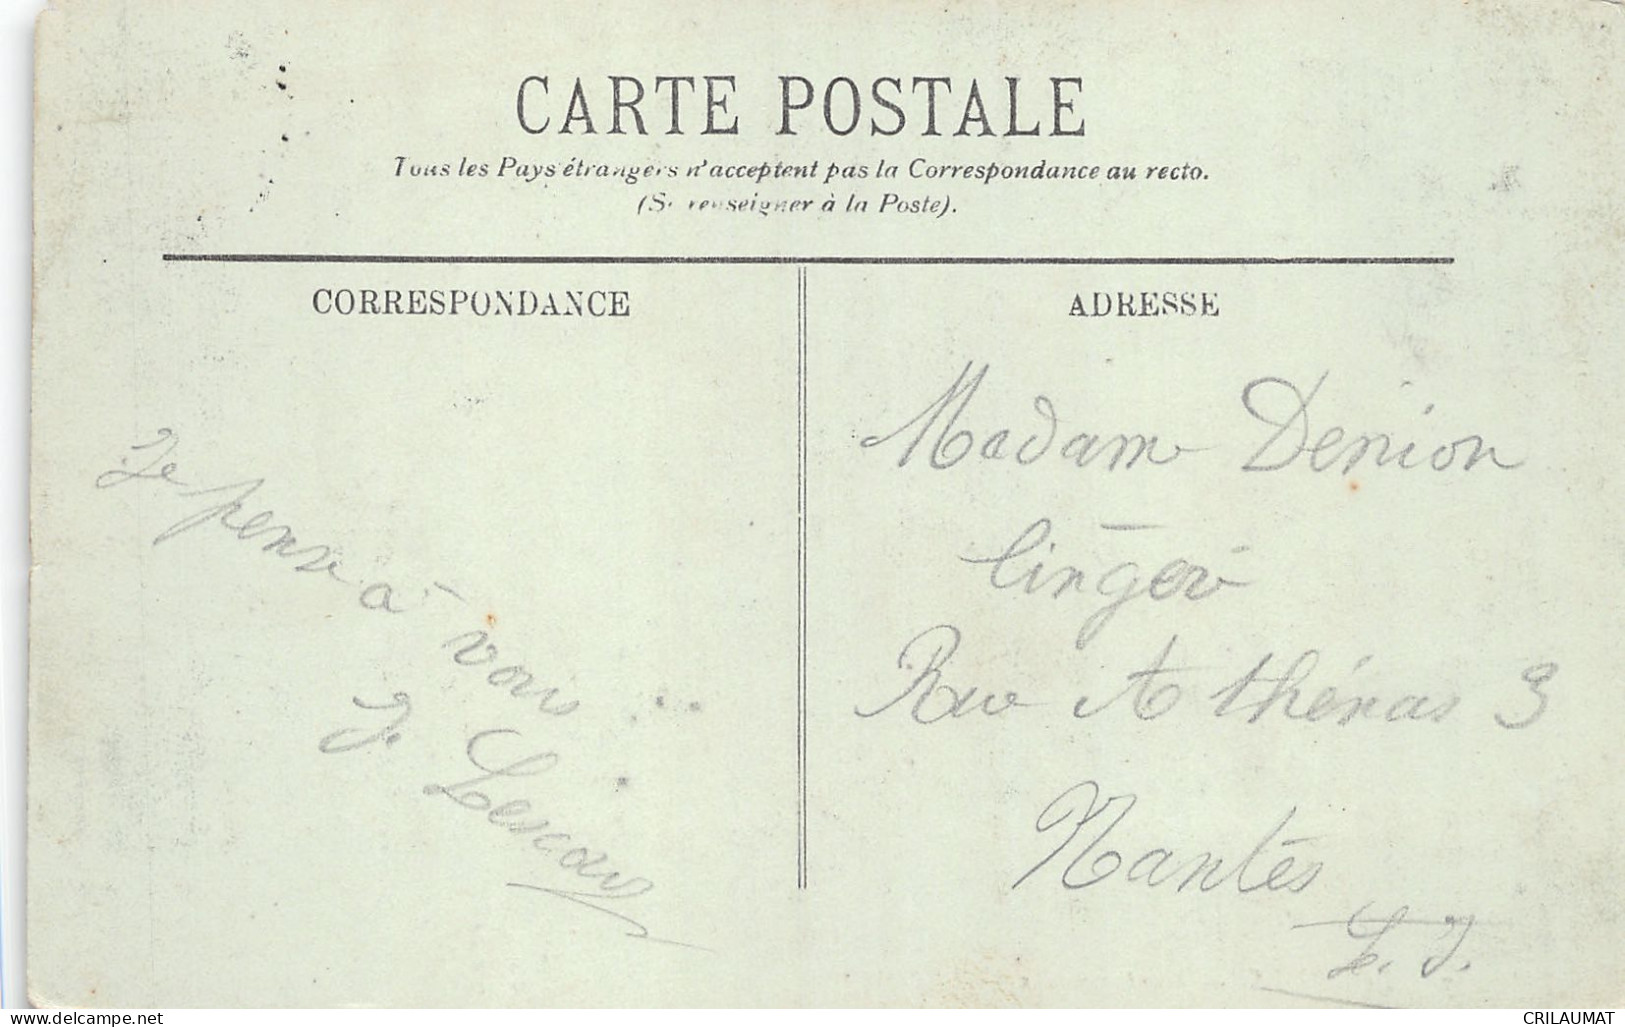 CARTE POSTALE
Tous les Pays étrangers n'acceptent pas la Correspondance au recto.
(Se renseigner à la Poste).
CORRESPONDANCE
ADRESSE
Je pense à
vous
J.
Madame Denion
Rue Athénas 3
Nantes
L. I.
www.delcampe.net
CRILAUMAT